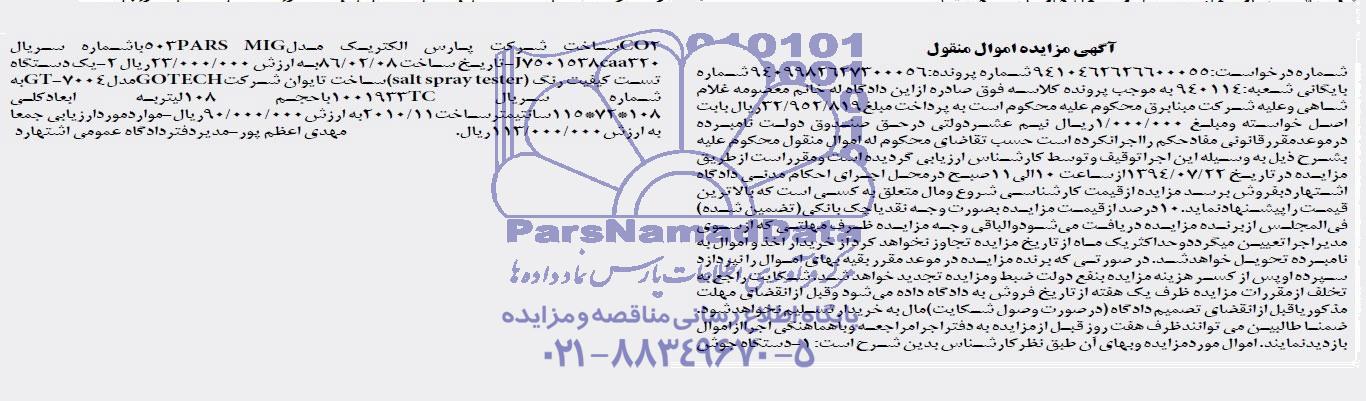 آگهی مزایده اموال منقول
شماره درخواست:۹۴۱۰۴۶۲۶۲۶۶۰۰۰۵۵ شماره پرونده:۹۴۰۹۹۸۲۶۲۷۳۰۰۰۵۶ شماره
بایگانی شعبه:۹۴۰۱۱۴ به موجب پرونده کلاسه فوق صادره ازاین دادگاه له خانم معصومه غلام
شاهی وعلیه شرکت مبنابرق محکوم علیه محکوم است به پرداخت مبلغ ۲۲/۹۵۲/۸۱۹ریال بابت
اصل خواسته ومبلغ ۱/۰۰۰/۰۰۰ریال نیم عشردولتی درحق صندوق دولت نامبرده
درموعدمقررقانونی مفادحکم رااجرانکرده است حسب تقاضای محکوم له اموال منقول محکوم علیه
بشرح ذیل به وسیله این اجراتوقیف وتوسط کارشناس ارزیابی گردیده است ومقرراست ازطریق
مزایده درتاریخ ۱۳۹۴/۰۷/۲۲ازساعت ۱۰الی۱۱صبح درمحل اجرای احکام مدنی دادگاه
اشتهاردبفروش برسد مزایده ازقیمت کارشناسی شروع ومال متعلق به کسی است که بالاترین
قیمت راپیشنهادنماید. ۱۰درصد ازقیمت مزایده بصورت وجه نقدیاچک بانکی(تضمین شده)
فی المجلس ازبرنده مزایده دریافت می شودوالباقی وجه مزایده ظرف مهلتی که ازسوی
مدیراجراتعیین میگرددوحداکثریک ماه ازتاریخ مزایده تجاوز نخواهد کرداز خریدار اخذ و اموال به
نامبرده تحویل خواهدشد. در صورتی که برنده مزایده در موعد مقرر بقیه بهای اموال را نپردازد
سپرده اوپس از کسر هزینه مزایده بنفع دولت ضبط ومزایده تجدید خواهد شد. شکایت راجع به
تخلف ازمقررات مزایده ظرف یک هفته از تاریخ فروش به دادگاه داده می شود وقبل ازانقضای مهلت
مذکوریاقبل ازانقضای تصمیم دادگاه (درصورت وصول شکایت)مال به خریدار تسلیم نخواهدشود.
ضمنا طالبین می توانندظرف هفت روز قبل از مزایده به دفتراجرامراجعه وباهماهنگی اجراازاموال
بازدیدنمایند. اموال موردمزایده وبهای آن طبق نظر کارشناس بدین شرح است: ۱-دستگاه جوش
CO۲ساخت شرکت پارس الکتریک مدل۵۰۳PARS MIGباشماره سریال
J۷۵۰۱۵۳۸caa۳۲۰-تاریخ ساخت ۸۶/۰۲/۰۸به ارزش ۲۳/۰۰۰/۰۰۰ریال ۲-یک دستگاه
تست کیفیت رنگ (salt spray tester)ساخت تایوان شرکتGOTECHمدلGT-۷۰۰۴به
شماره سریال ۱۰۰۱۹۲۳TCباحجم ۱۰۸لیتربه ابعادکلی
۱۰۸*۷۲*۱۱۵سانتیمترساخت۲۰۱۰/۱۱به ارزش ۹۰/۰۰۰/۰۰۰ریال-مواردموردارزیابی جمعا
به ارزش ۱۱۳/۰۰۰/۰۰۰ریال. مهدی اعظم پور-مدیردفتردادگاه عمومی اشتهارد
ParsNamadData
مرکز فرآوری اطلاعات پارس نماد داده ها
پایگاه اطلاع رسانی مناقصه و مزایده
۰۲۱-۸۸۳۴۹۶۷۰-۵